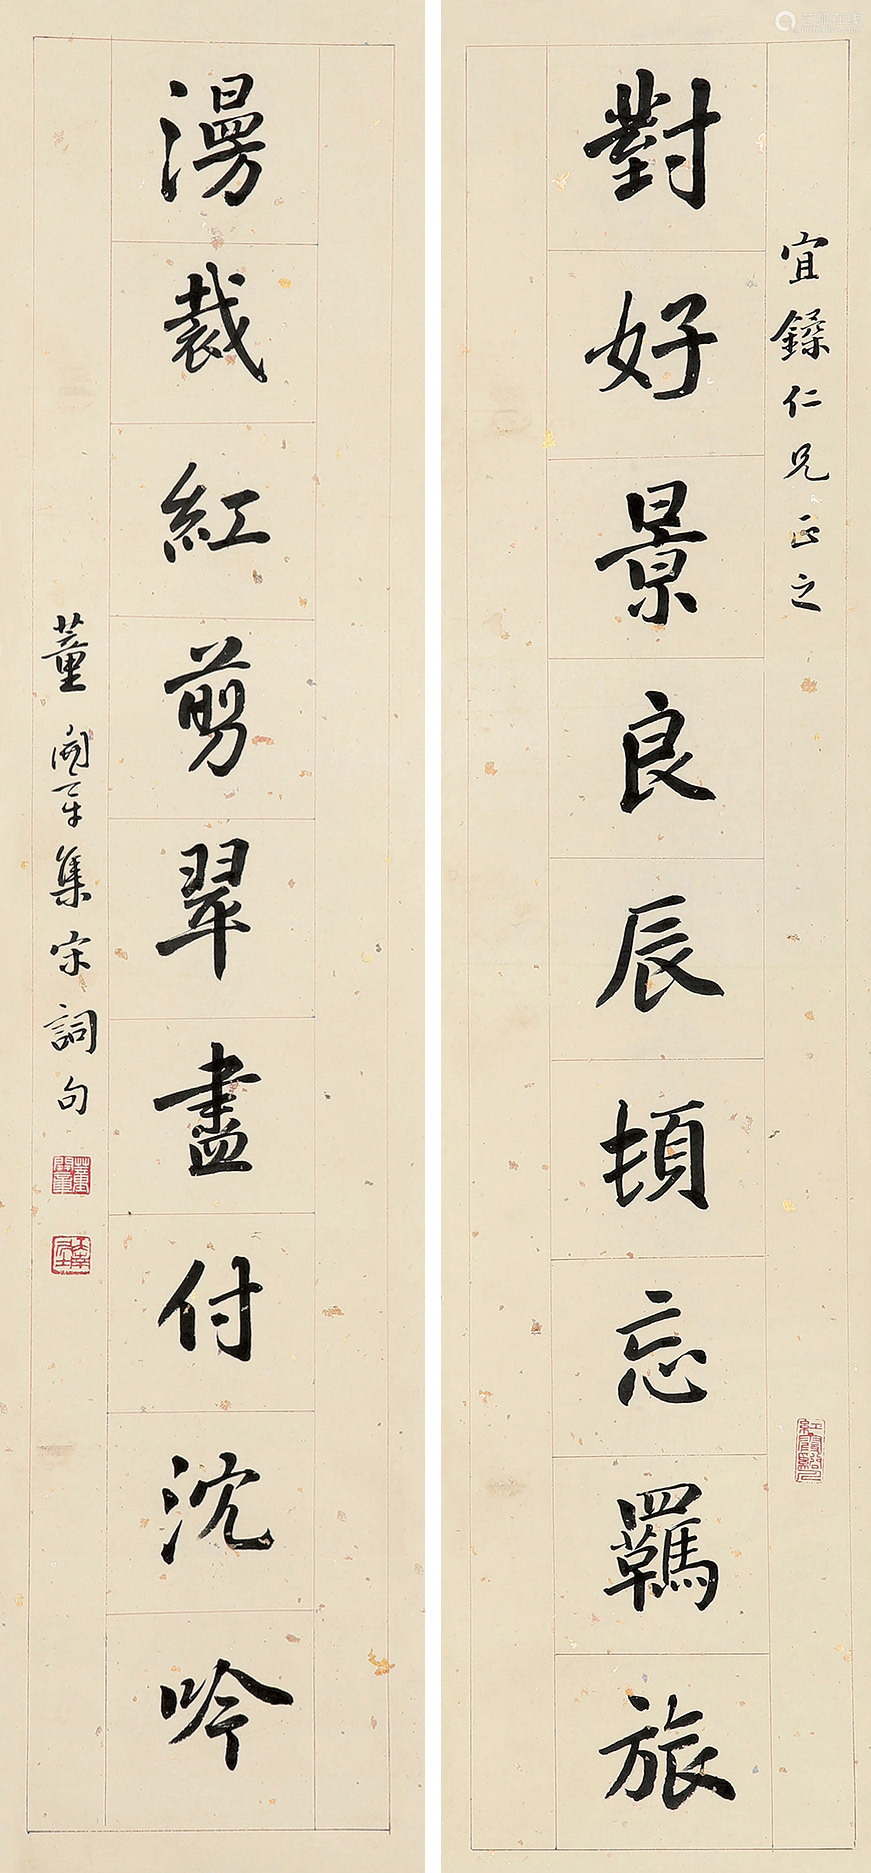 宜鑅仁兄正之
對好景良辰頓忘羈旅
漫裁紅剪翠盡付沈吟
集宋詞句